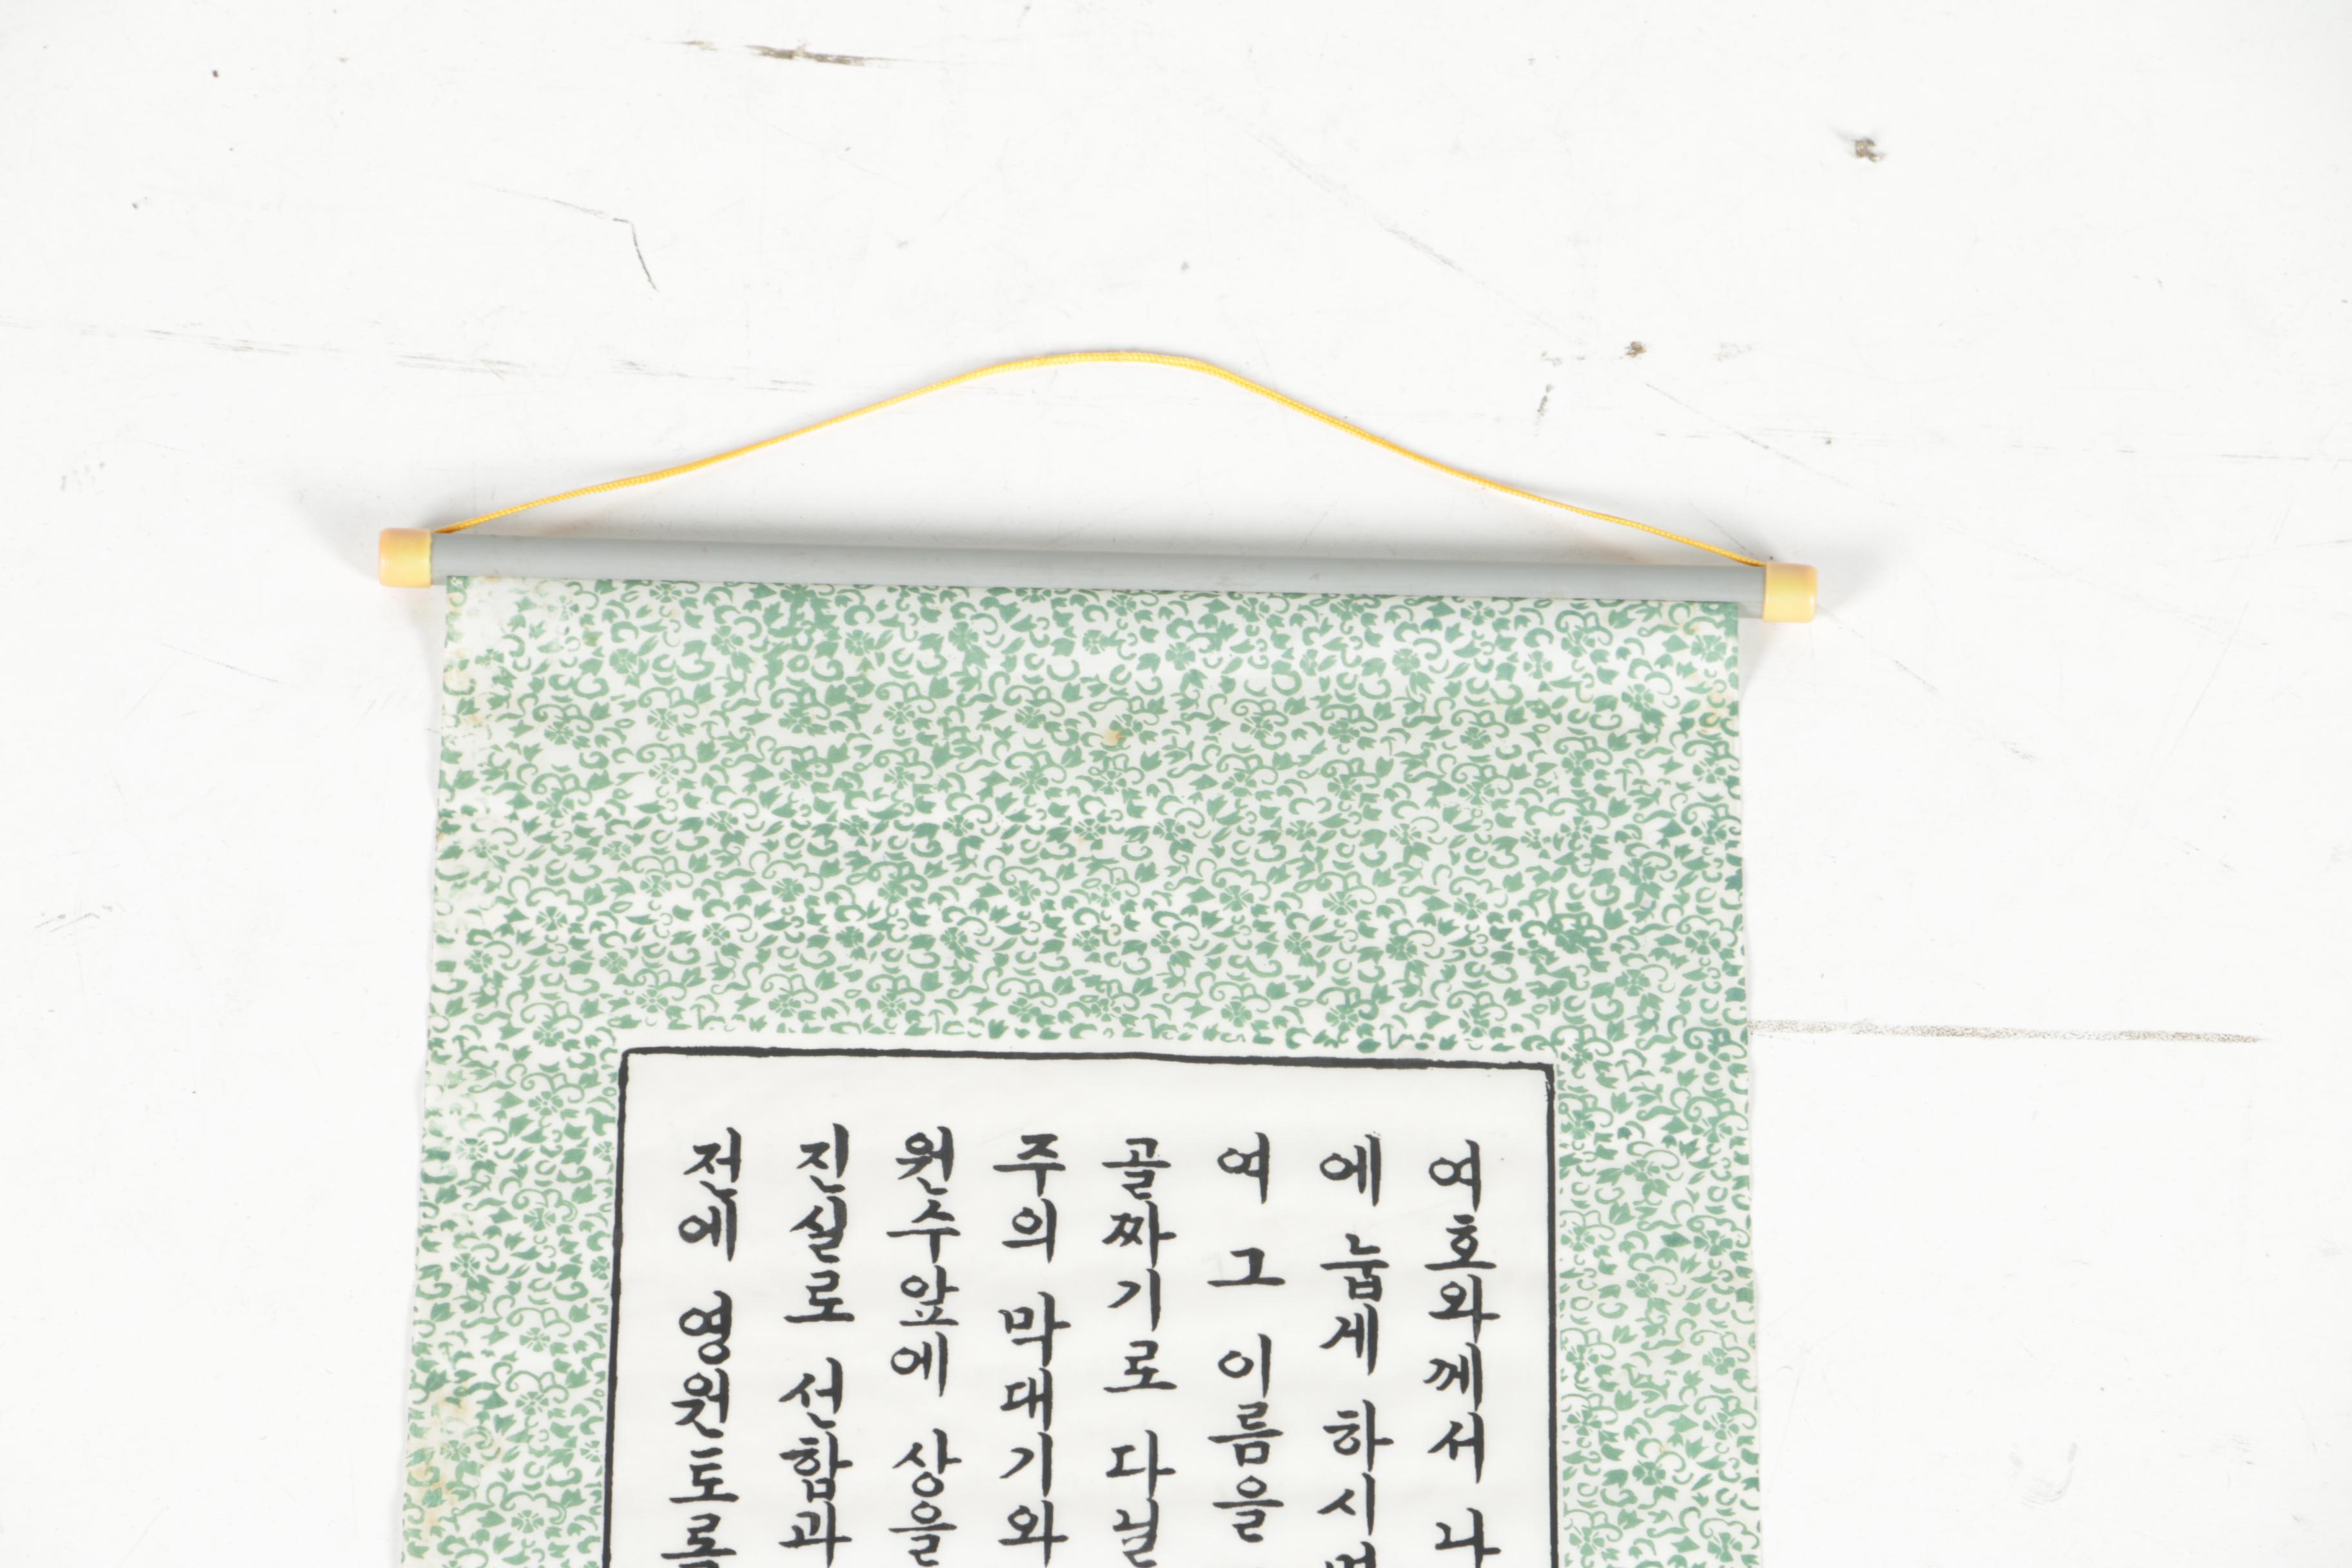 여호와께서 나
에 눕게 하시며
여 그 이름을
골짜기로 다닐
주의 막대기와
원수앞에 상을
진실로 선함과
전에 영원토록